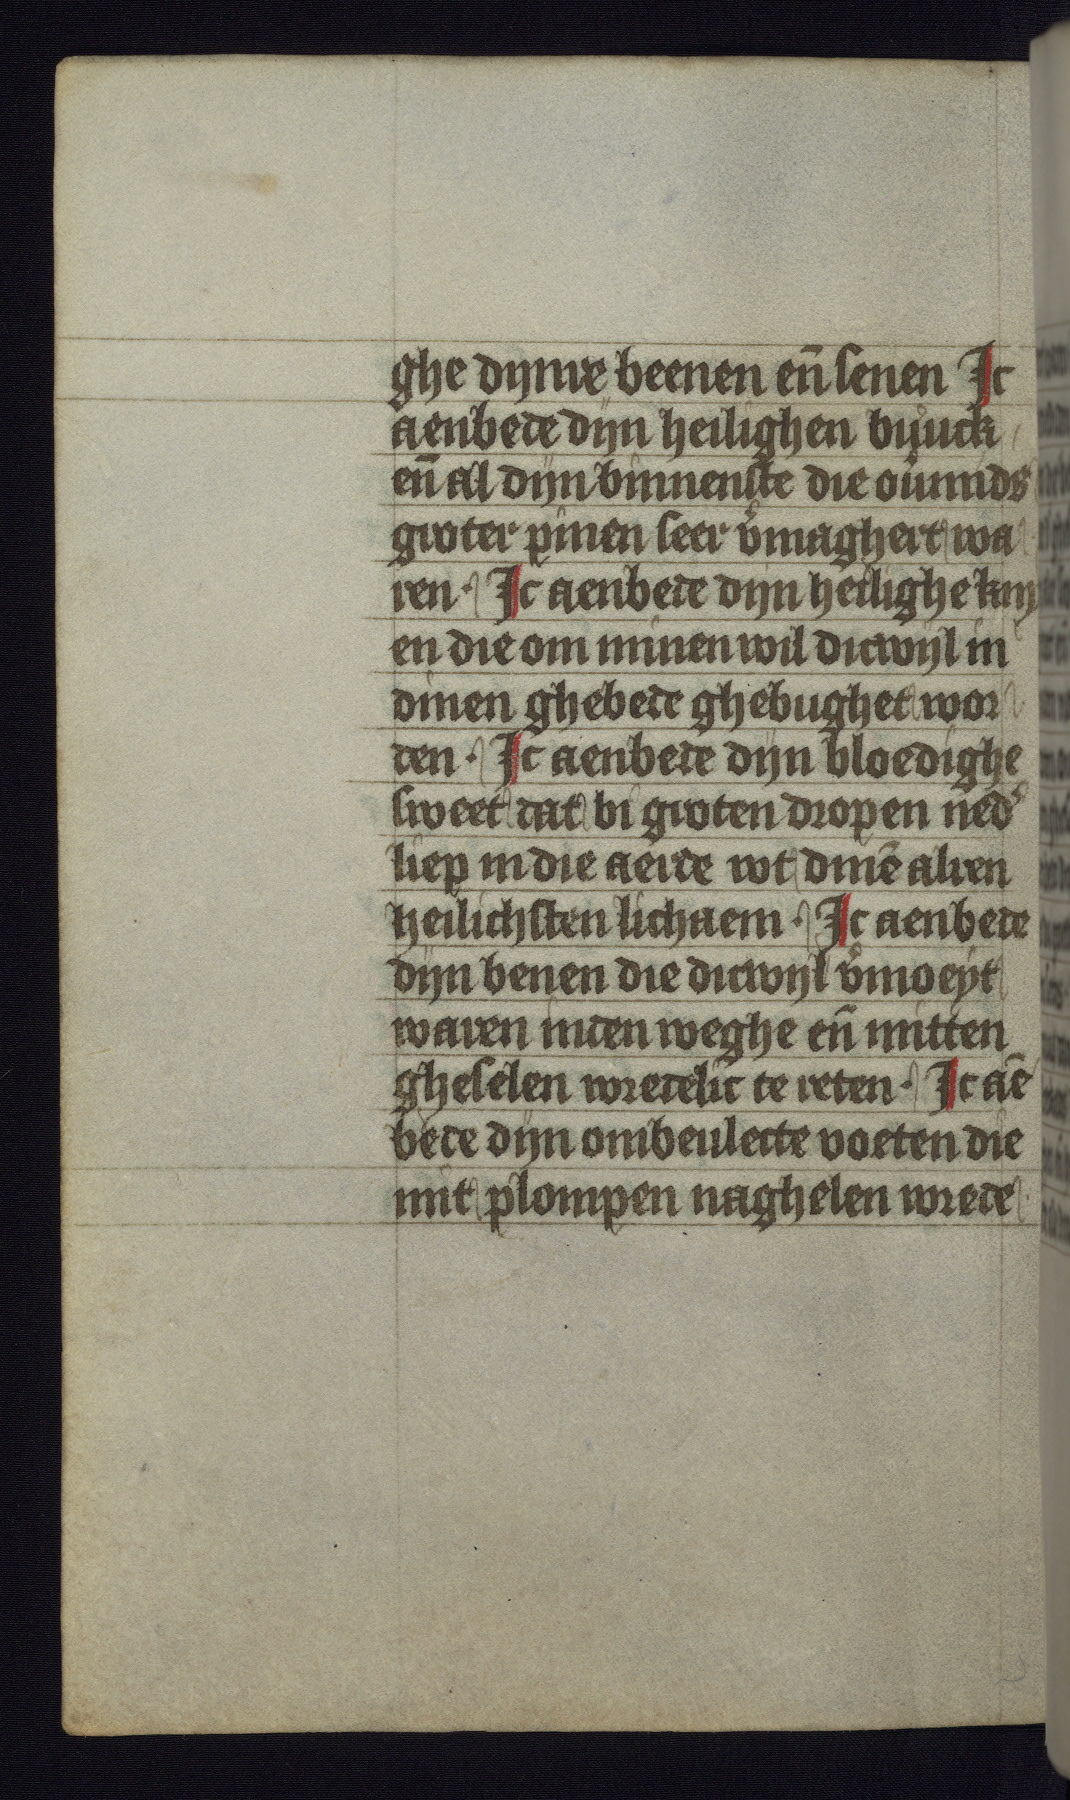 ghe dynre beenen en̄ senen Ic
aenbede dijn heilighen buuck
en̄ al dijn binnenste die
groter pinen seer v͛maghert wa
ren· Ic aenbede dijn heilighe kny
en die om minen wil dicwijl in
dinen ghebede ghebughet wor
den· Ic aenbede dijn bloedighe
sweet dat bi groten dropen ned͛
liep in die aerde wt dinē alren
heilichsten lichaem· Ic aenbede
dijn benen die dicwijl v͛moeyt
waren inden weghe en̄ mitten
gheselen wredelic te reten· Ic aē
bede dijn ombeulecte voeten die
mit plompen naghelen wrede